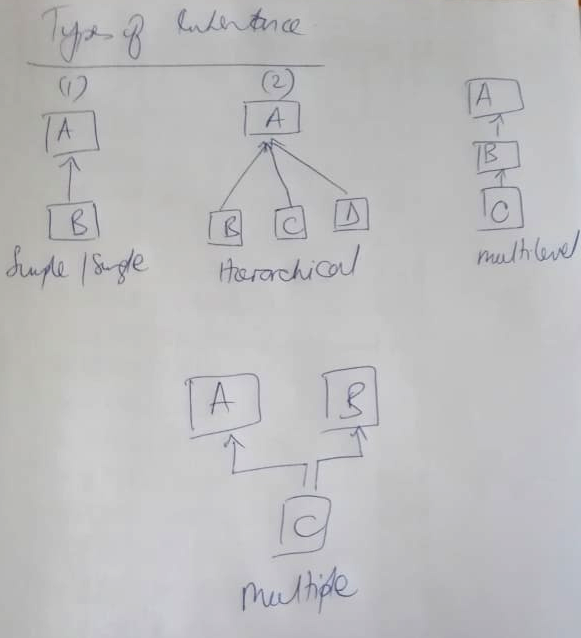 Types of Inheritance
(1)
(2)
A
B
Simple / Single
A
B C D
Hierarchical
A
B
C
multilevel
A B
C
multiple